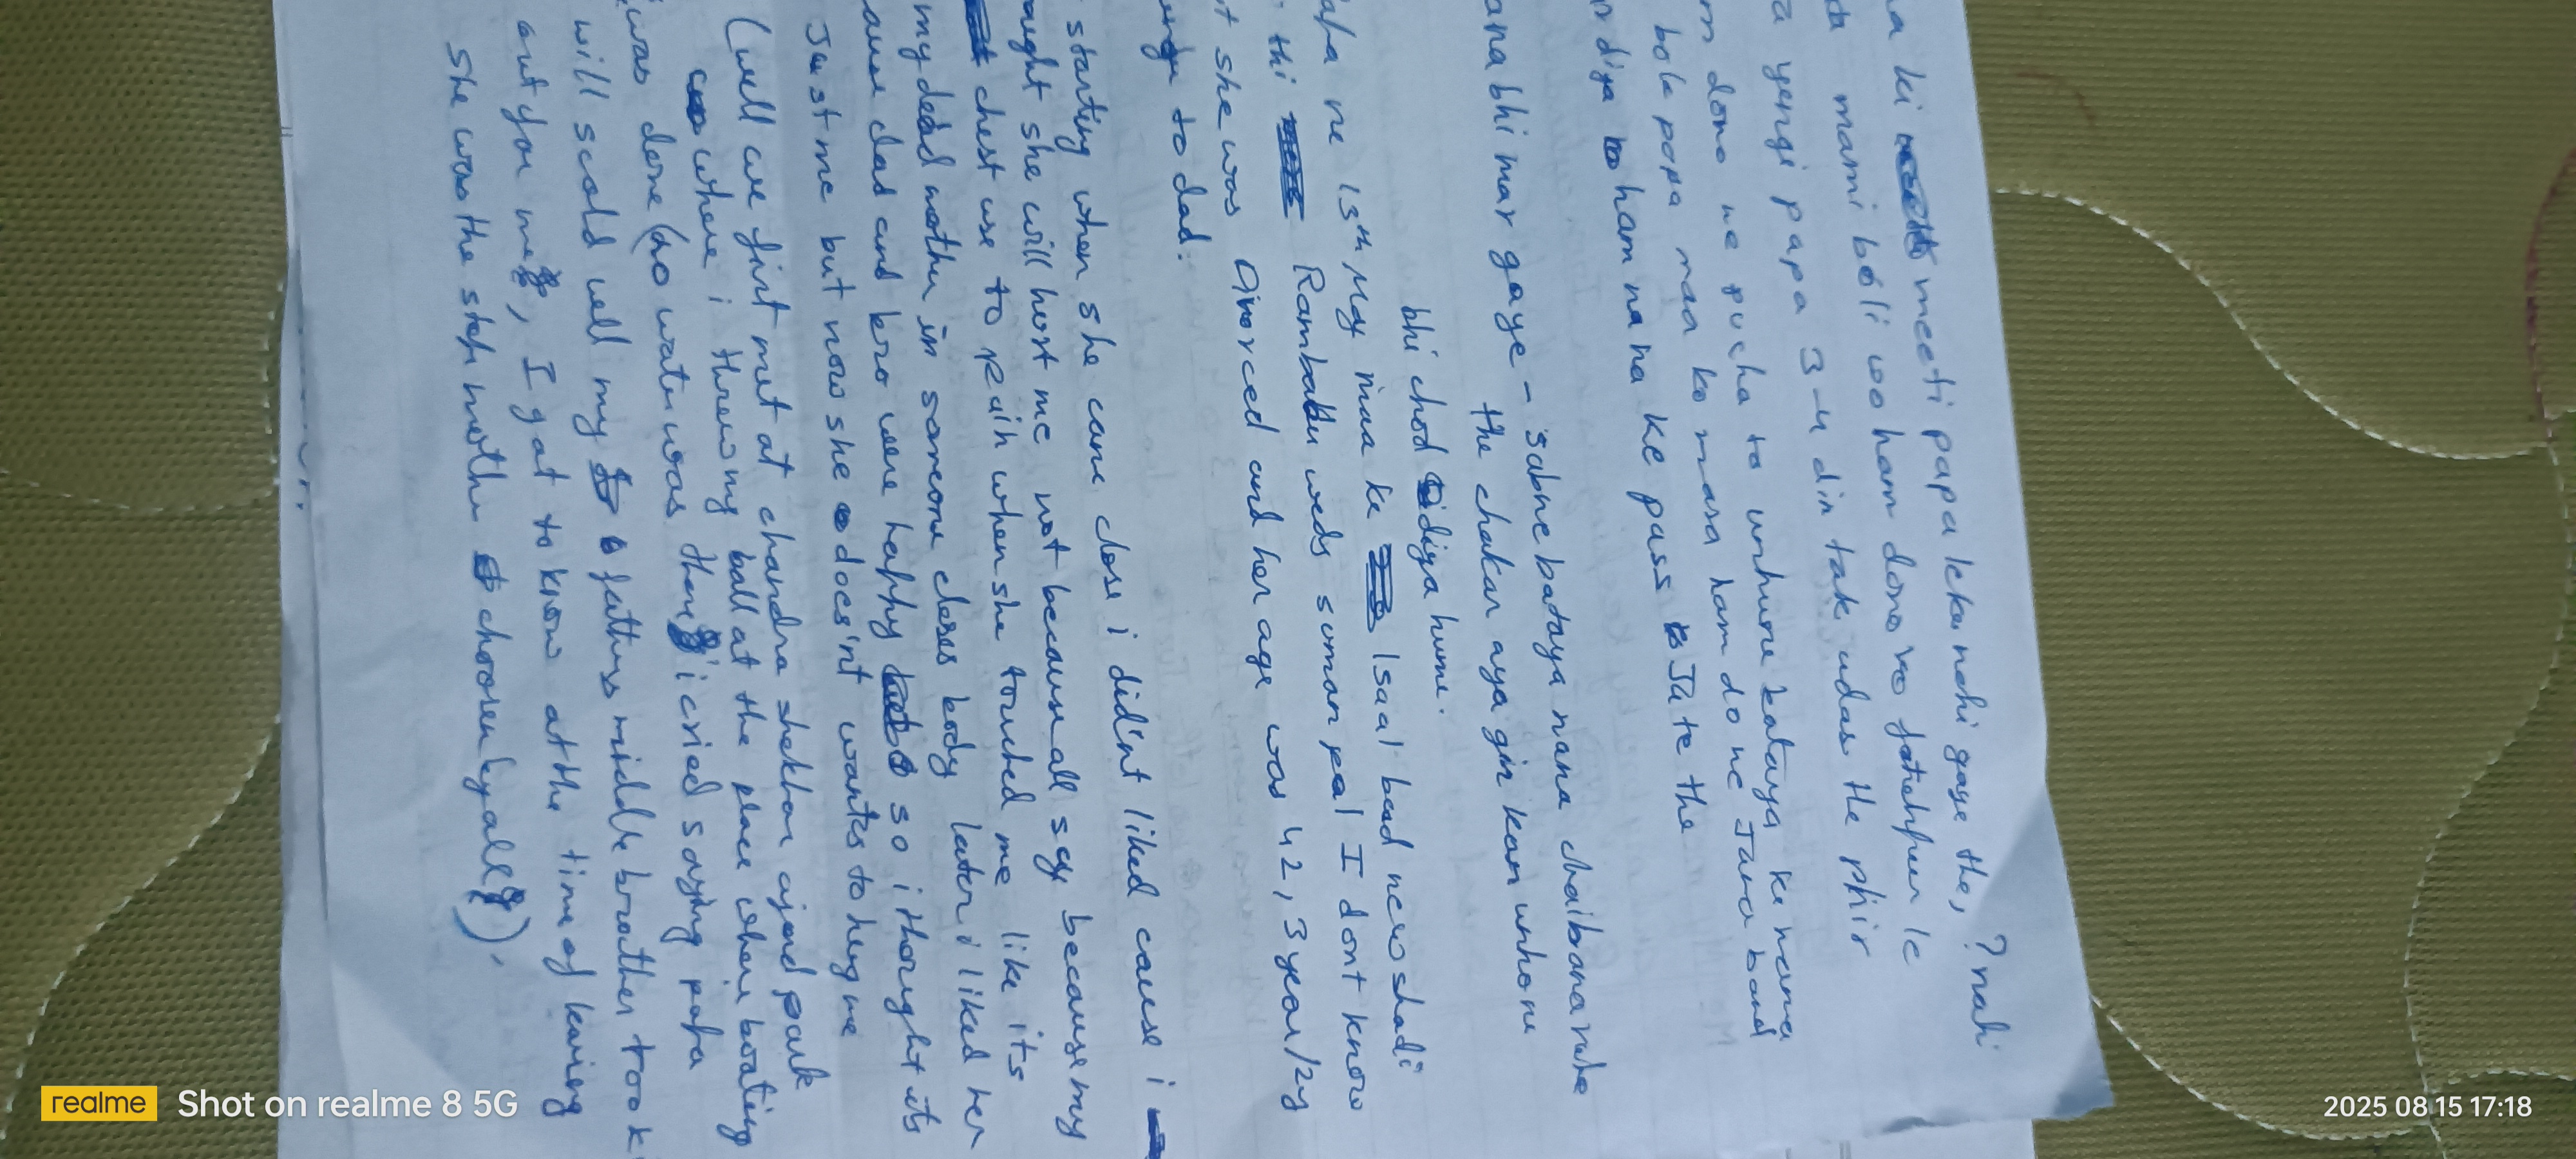 ? nahi
na ki meeti papa lekar nahi gaye the,
mami boli woo ham dono ko fatehpur le
yengi papa 3-4 din tak udas the phir
m dono ne pucha to unhone bataya ke nana
bole papa maa ko masa ham do ne Jana band
r diya ham na na ke pass Jate the
ana bhi mar gaye - sabne bataya nana chai bana rahe
the chakar aya gir kar unhone
bhi chod diya hume.
apa ne 15th May maa ke 1 saal baad new shadi
thi Rambabu weds suman pal I dont know
t she was Divorced and her age was 42, 3 year/2y
to dad.
starting when she came close i didint liked cause i
ought she will hurt me not because all say because my
chest use to pain when she touched me like its
my dead mother in someone closes body later i liked her
ause dad and bro were happy so i thought its
Just me but now she does'nt wants to hug me
(well we first met at chandra shekhar ajad park
where i threw my ball at the place where boating
was done (no water was there i cried saying papa
will scold well my fathers middle brother took
out you me, I got to know at the time of having
She was the step mother choosen by all).
realme Shot on realme 8 5G
2025 08 15 17:18